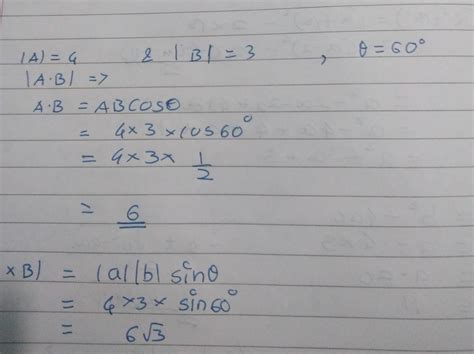 |A| = 4 & |B| = 3 , θ = 60°
|A·B| =>
A·B = ABCOSθ
= 4×3×cos60°
= 4×3× 1/2
= 6
×B| = |a||b| sinθ
= 4×3× sin60°
= 6√3